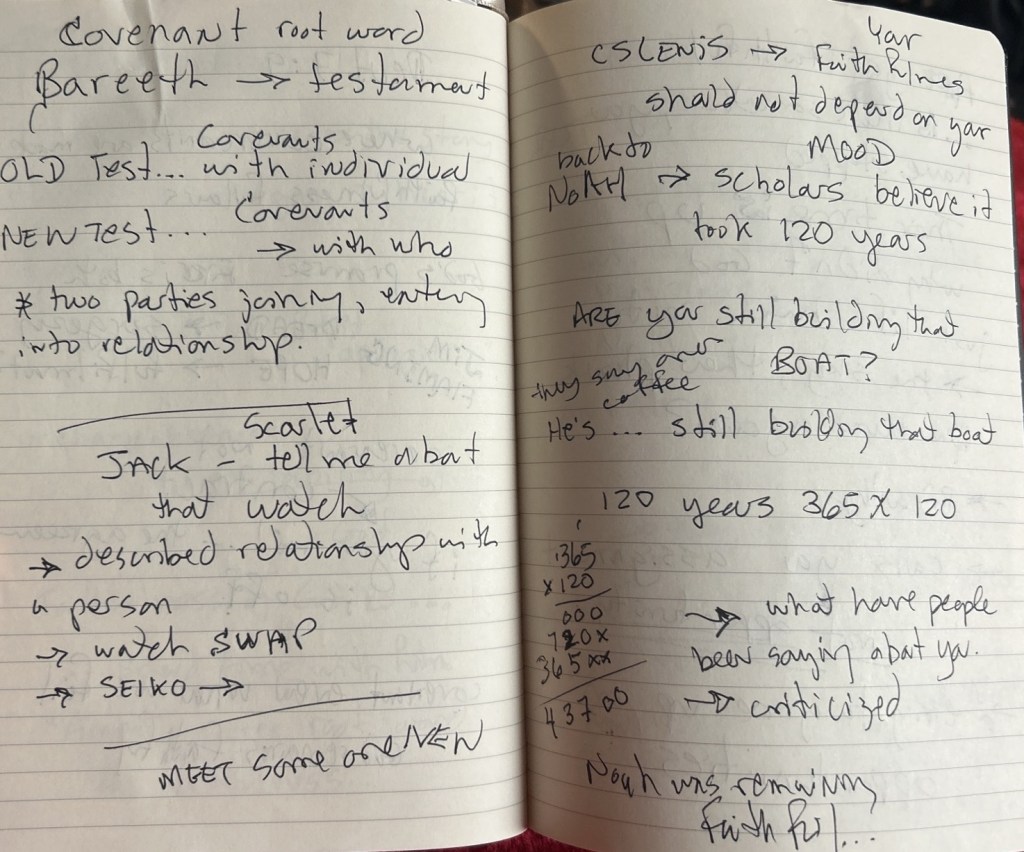 Covenant root word
Bareeth → testament
Covenants
OLD Test... with individual
Covenants
NEW Test...
→ with who
* two parties joining, entering
into relationship.
Scarlet
JACK - tell me abat
that watch
→ described relationship with
a person
→ watch SWAP
→ SEIKO →
MEET some one NEW
Yar
CSLEWIS → Faithfulness
shald not depend on yar
MOOD
back to
NOAH → scholars believe it
took 120 years
ARE yar still building that
BOAT?
they say over
coffee
He's ... still building that boat
120 years 365 X 120
365
x120
000
720x
365xx
43700
→ what have people
been saying abat ya.
→ criticized
Noah was remaining
Faithful...